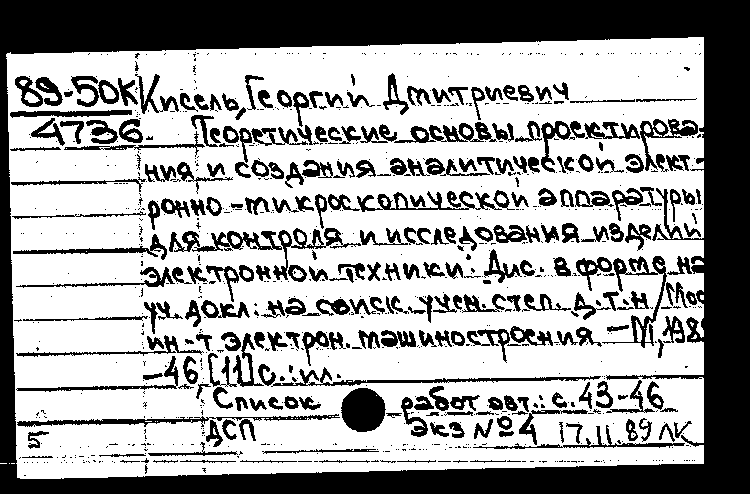 89-50К Кисель, Георгий Дмитриевич
4736. Теоретические основы проектирова-
ния и создания аналитической элект-
ронно-микроскопической аппаратуры
для контроля и исследования изделий
электронной техники: Дис. в форме на
уч. докл. на соиск. учен. степ. д.т.н / Мос
ин-т электрон. машиностроения. — М, 198
—46 [11] с.: ил.
Список работ авт.: с. 43-46
5 ДСП Экз №4 17.11.89 ЛК